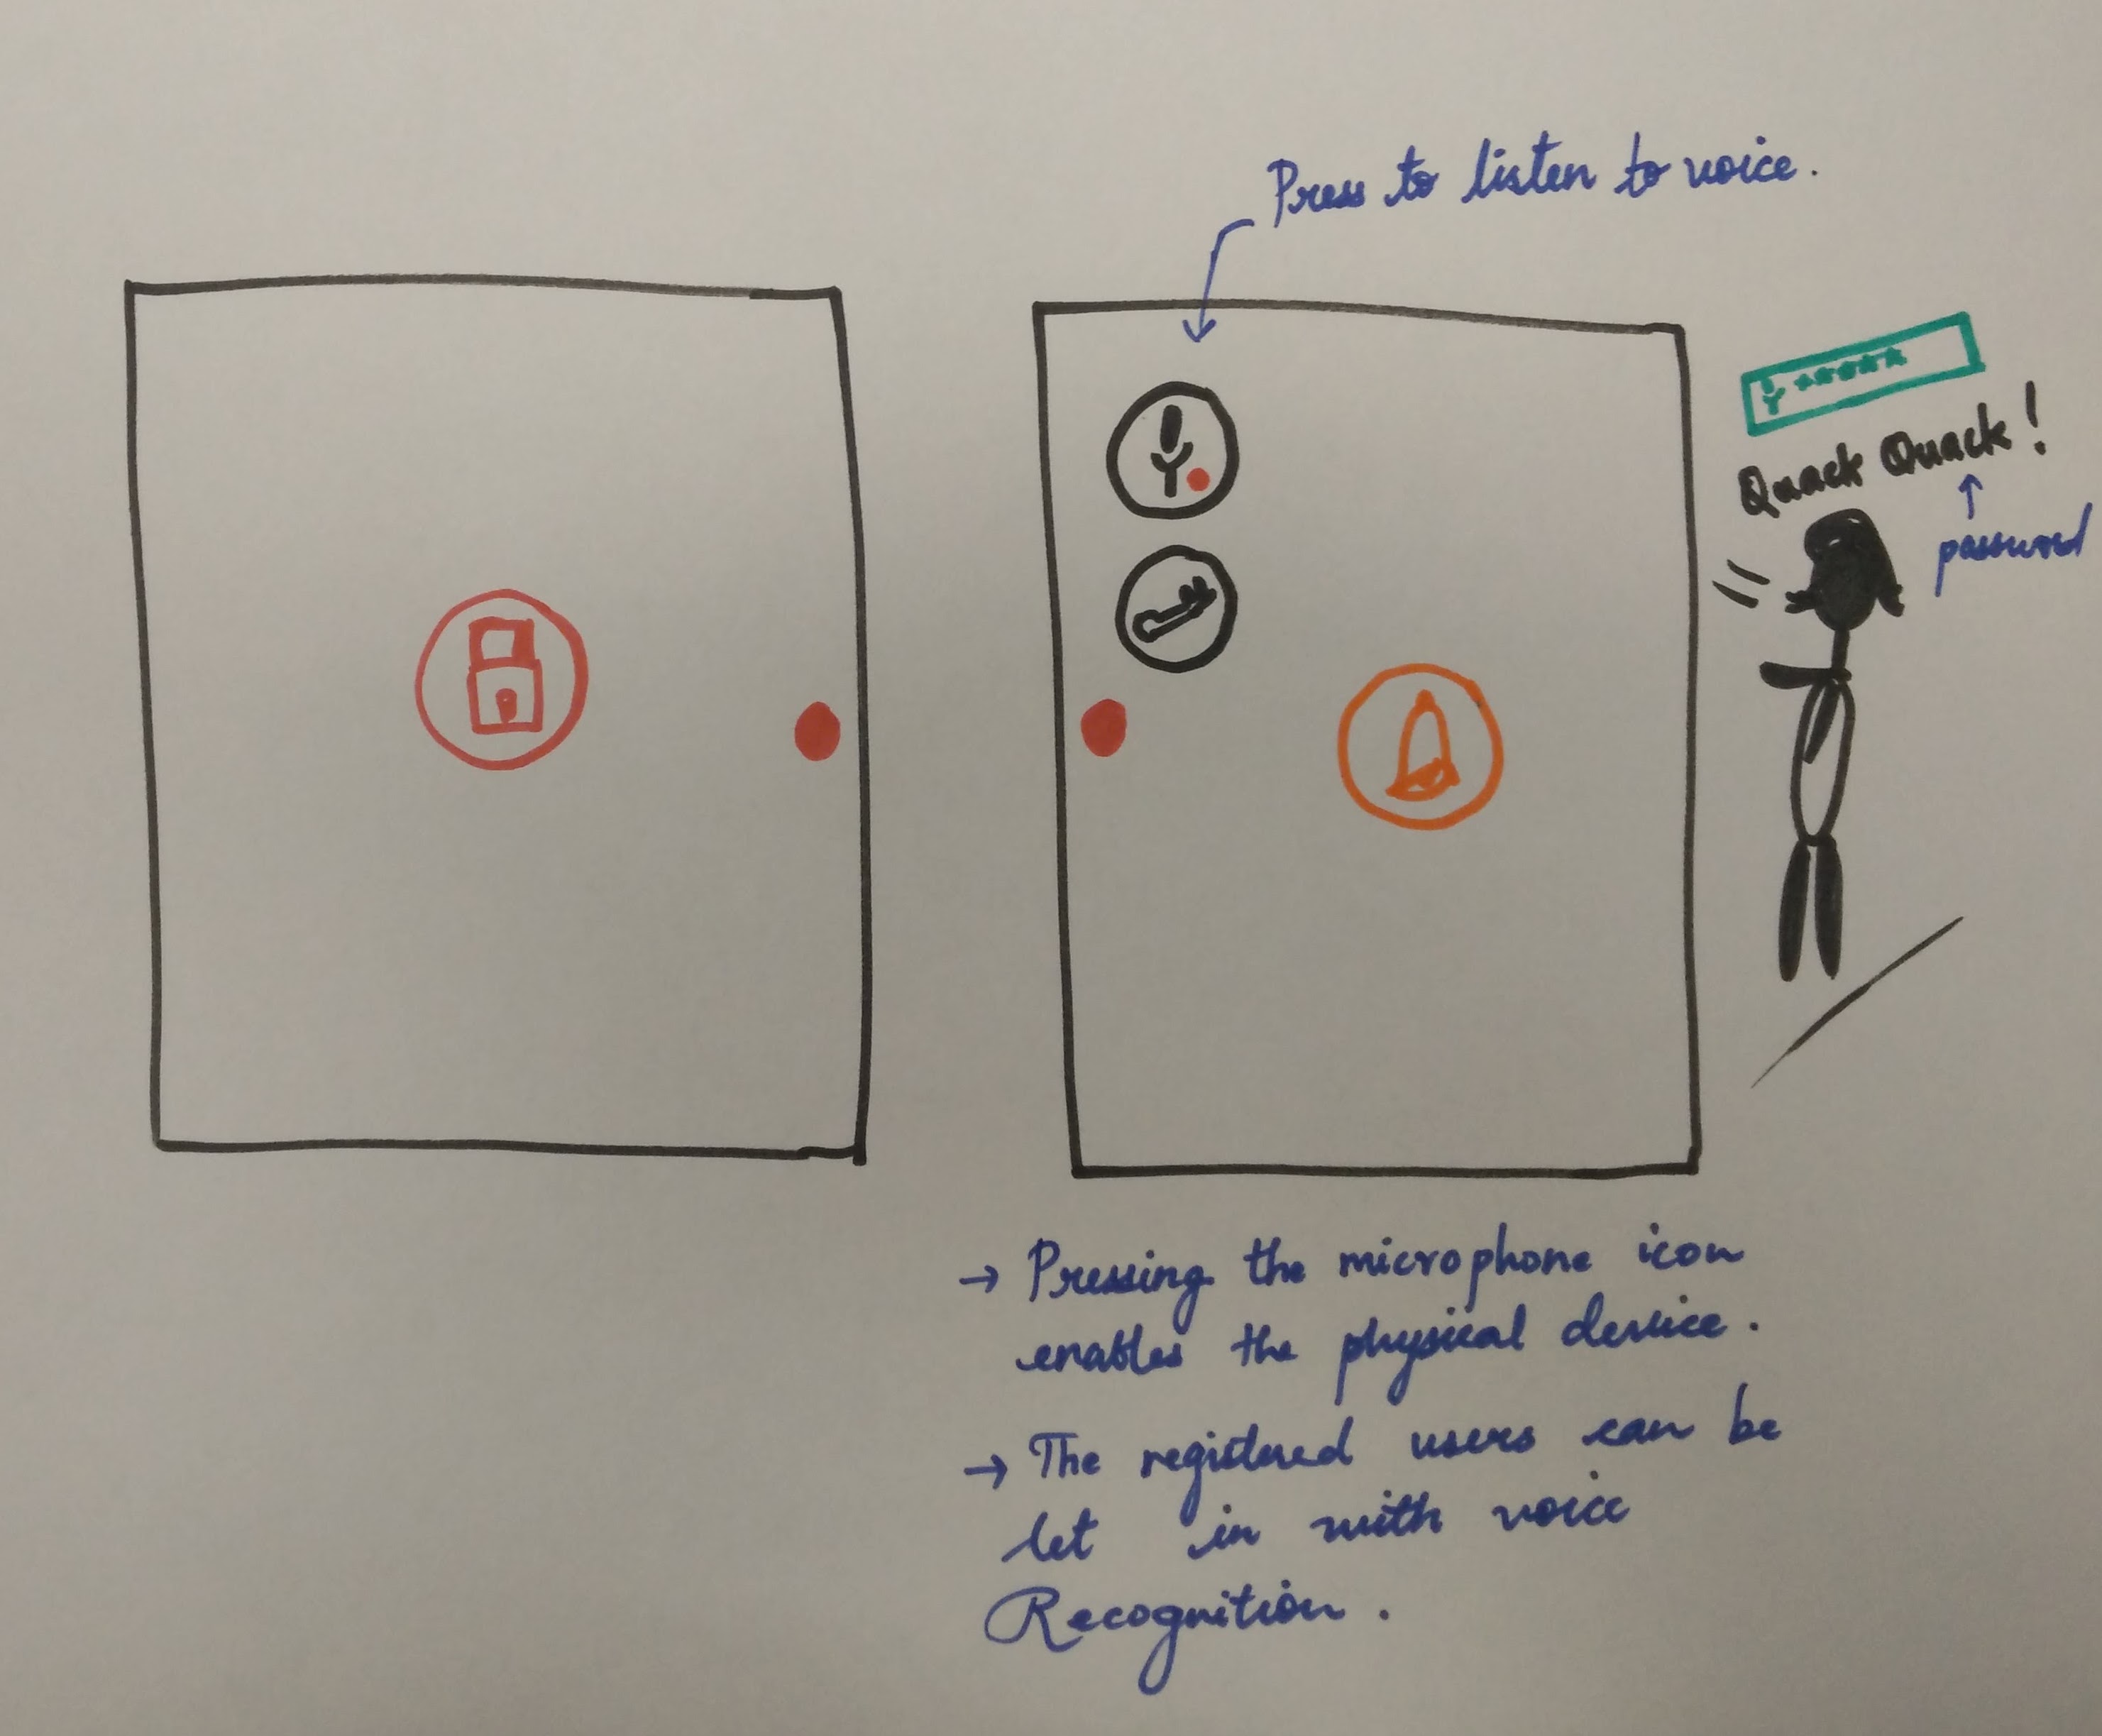 Press to listen to voice.
*****
Quack Quack!
password
→ Pressing the microphone icon
enables the physical device.
→ The registered users can be
let in with voice
Recognition.